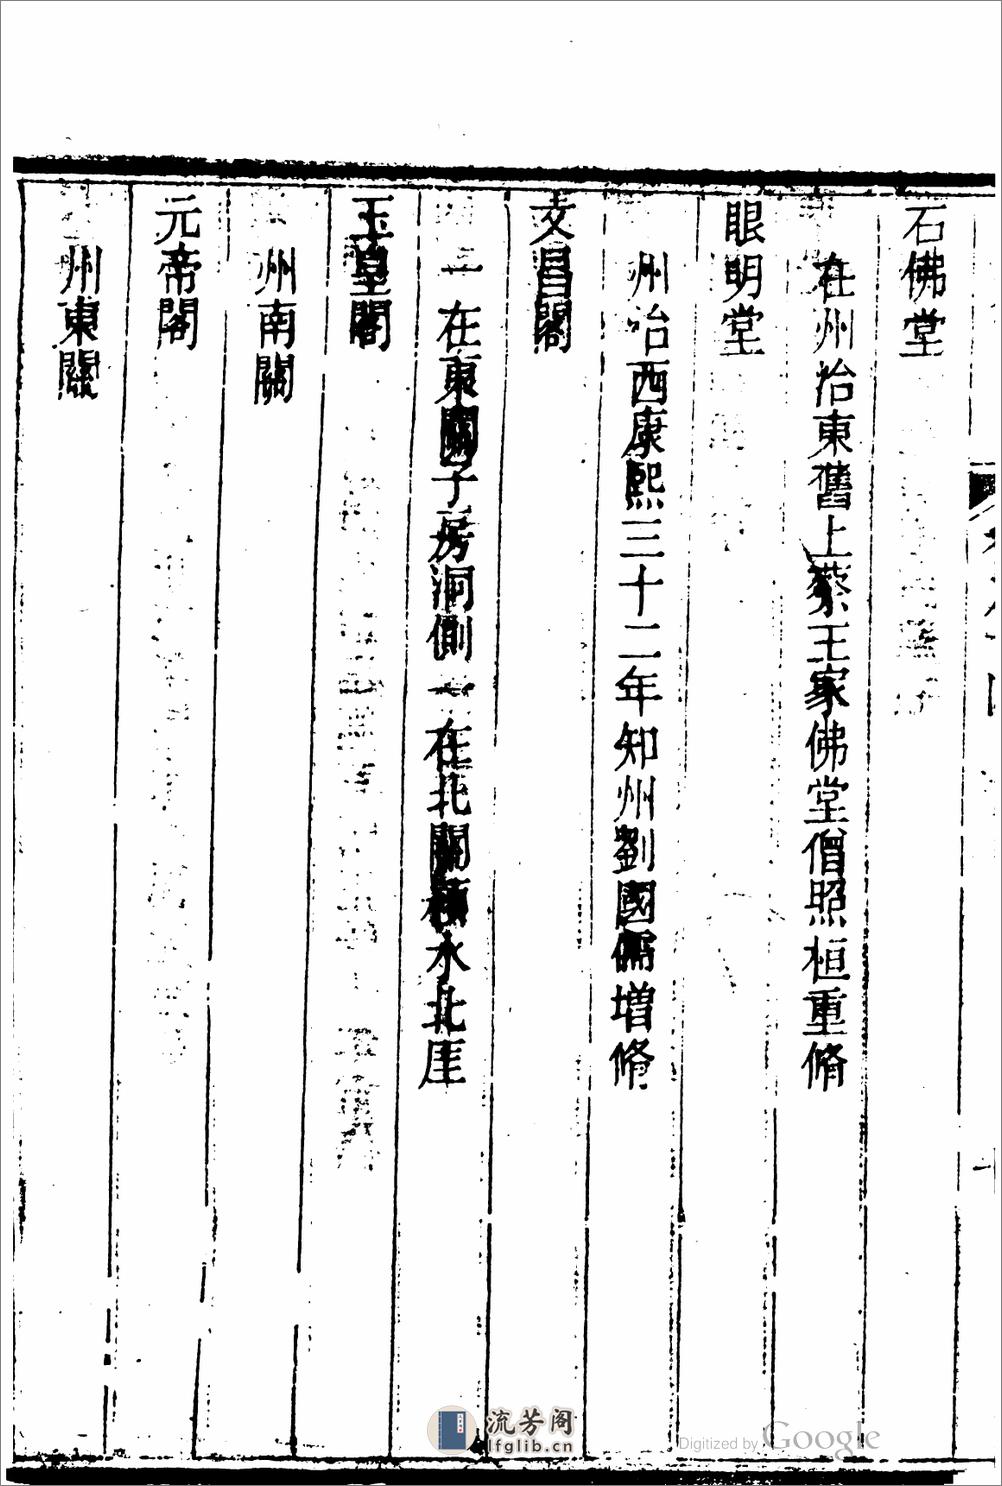 石佛堂
在州治東舊上蔡王家佛堂僧照桓重脩
眼明堂
州治西康熙三十二年知州劉國儒增脩
文昌閣
一在東關子房洞側一在北關積水北厓
玉皇閣
州南關
元帝閣
州東關
流芳阁
lfglib.cn
Digitized by Google